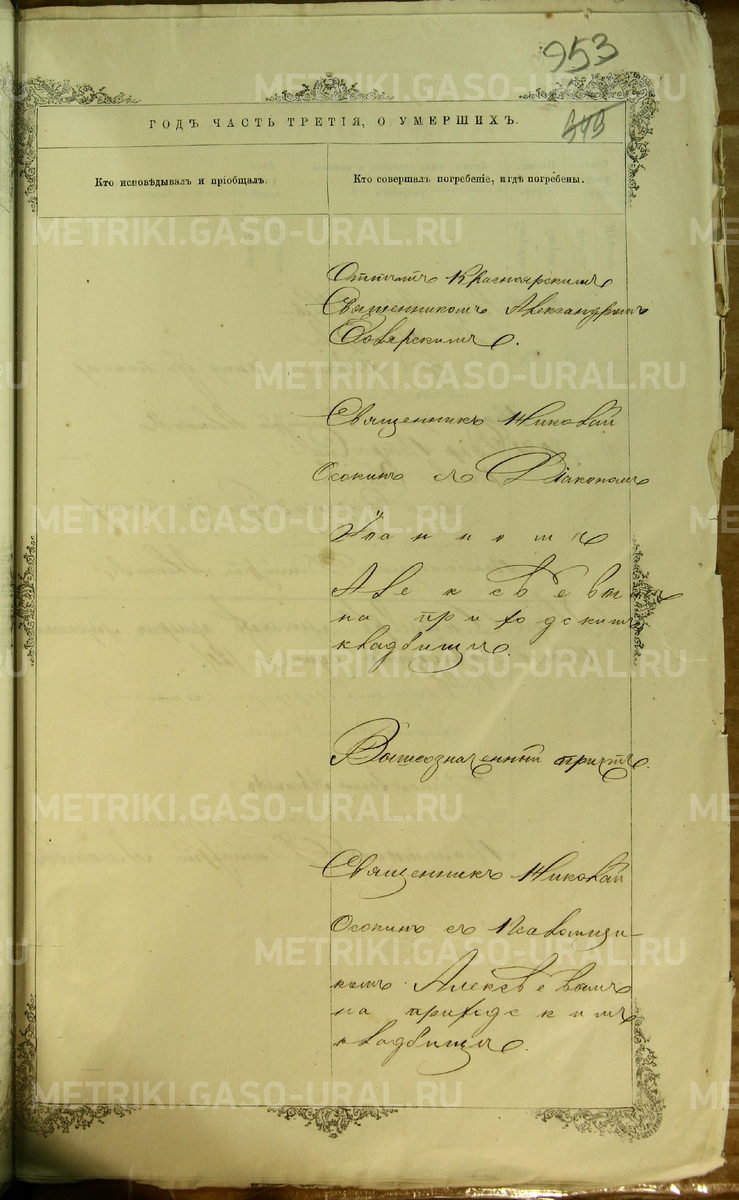 953
ГОДЪ ЧАСТЬ ТРЕТІЯ, О УМЕРШИХЪ.
Кто исповѣдывалъ и пріобщалъ.
Кто совершалъ погребеніе, и гдѣ погребены.
Отпѣтъ Красноярскимъ
Священникомъ Александромъ
Боярскимъ.
Священникъ Николай
Осокинъ съ Діакономъ
Іоанномъ
Алексѣевымъ
на приходскомъ
кладбищѣ.
Вышеозначенный причтъ.
Священникъ Николай
Осокинъ съ Псаломщи-
комъ Алексѣевымъ
на приходскомъ
кладбищѣ.
METRIKI.GASO-URAL.RU